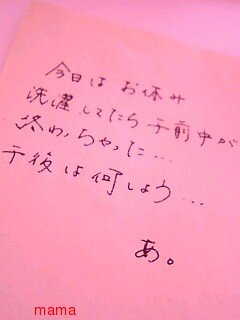 今日は お休み
洗濯してたら午前中が
終わっちゃった…
午後は何しよう…
あ。
mama